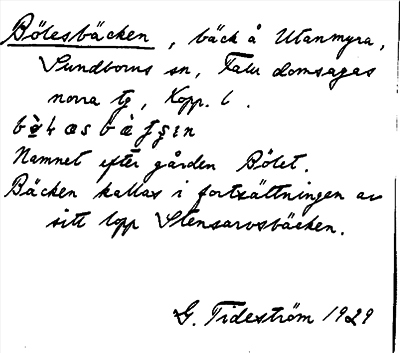 Bölesbäcken, bäck å Utanmyra,
Sundborns sn, Falu domsagas
norra tg, Kopp. l.
Namnet efter gården Bölet.
Bäcken kallas i fortsättningen av
sitt lopp Stensarvsbäcken.
G. Tideström 1929